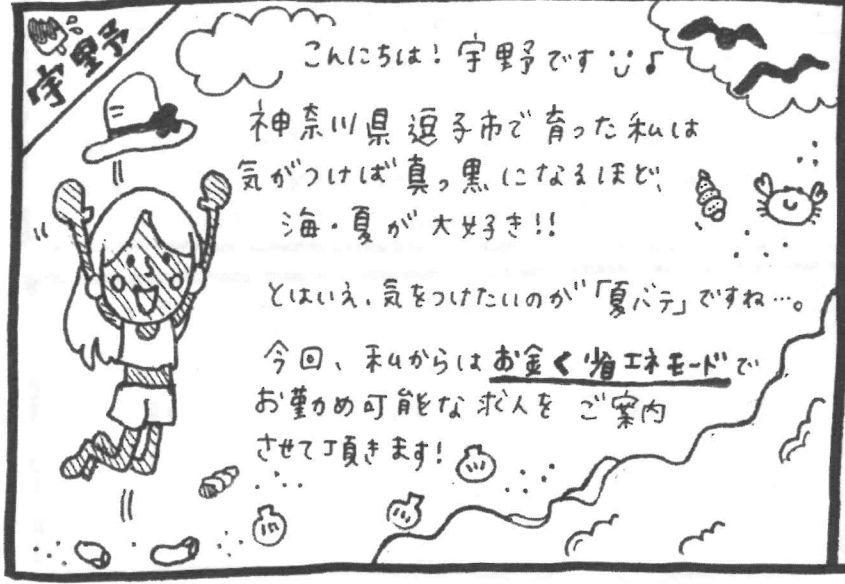 宇野
こんにちは！宇野です♪
神奈川県逗子市で育った私は
気がつけば真っ黒になるほど、
海・夏が大好き!!
とはいえ、気をつけたいのが「夏バテ」ですね…。
今回、私からはお金く省エネモードで
お勤め可能な求人をご案内
させて頂きます！